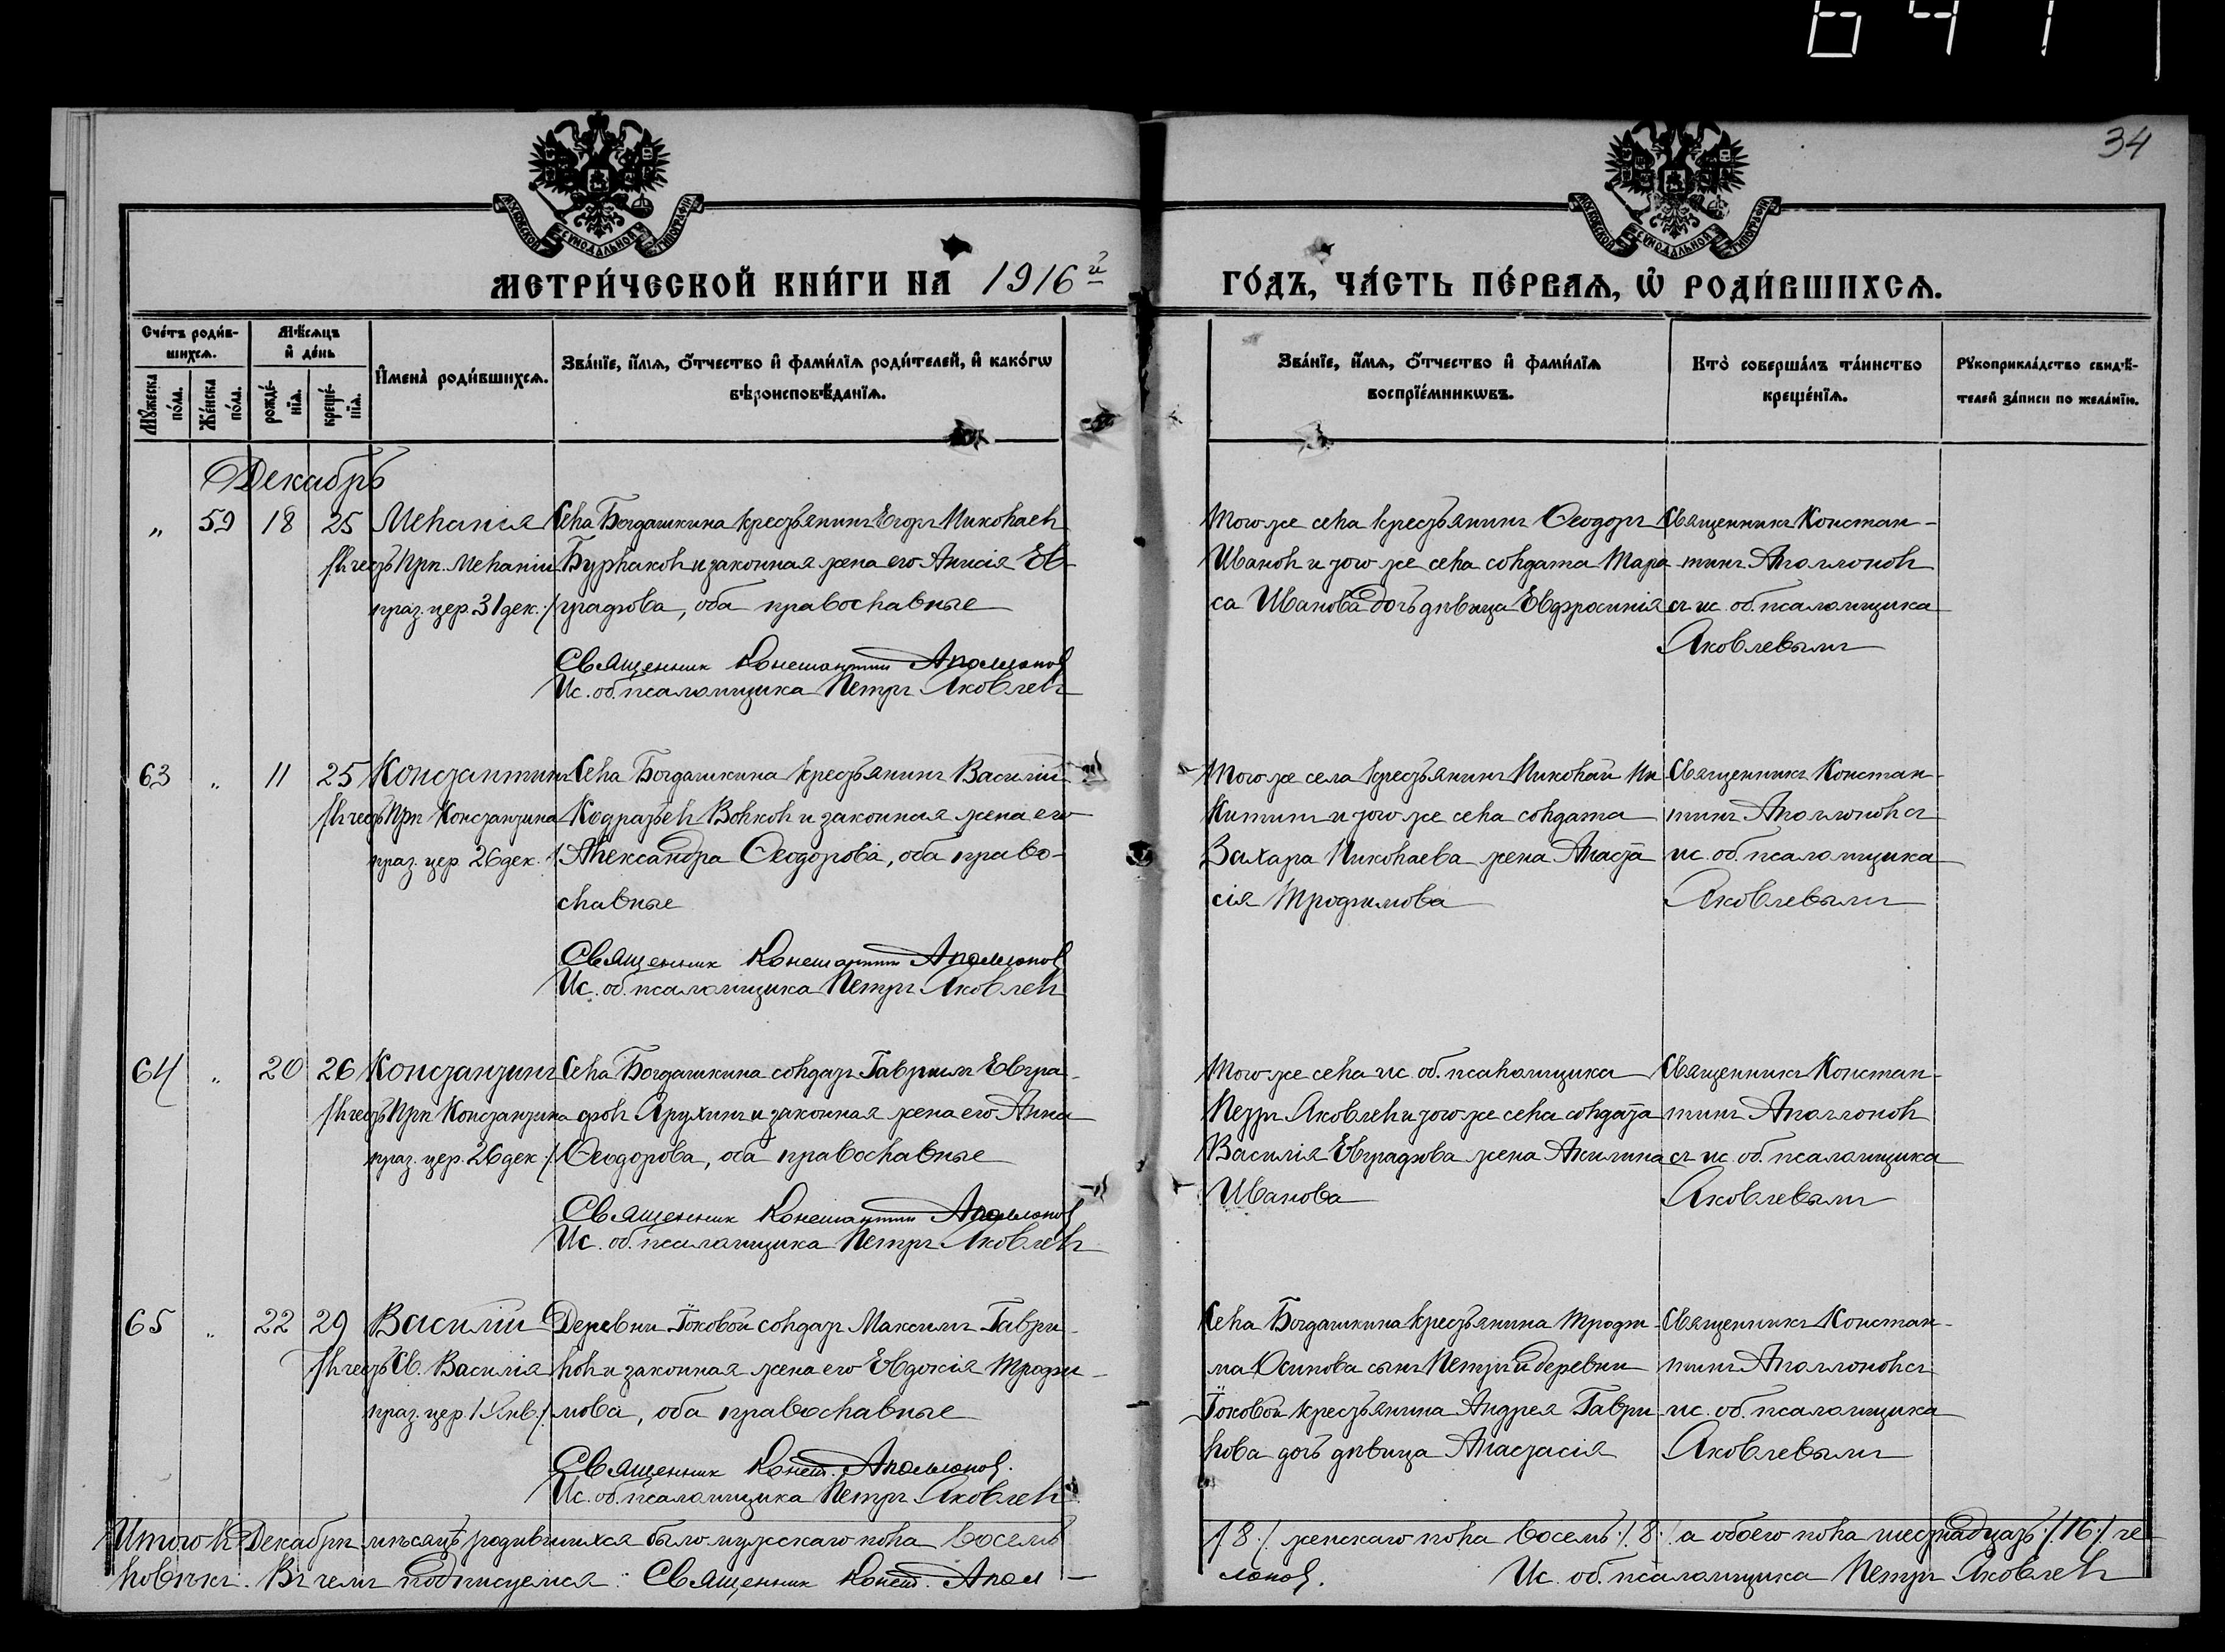 641
34
МОСКОВСКОЙ СѴНОДАЛЬНОЙ ТИПОГРАФІИ
МОСКОВСКОЙ СѴНОДАЛЬНОЙ ТИПОГРАФІИ
МЕТРИ́ЧЕСКОЙ КНИ́ГИ НА 1916й ГО́ДЪ, ЧА́СТЬ ПЕ́РВАѦ, Ѡ РОДИ́ВШИХСѦ.
Сче́тъ роди́в-
шихсѧ.
Мꙋ́жеска по́ла.
Же́нска по́ла.
Мѣ́сѧцъ
и҆ де́нь
рожде́-
нїѧ.
креще́-
нїѧ.
И҆мена̀ роди́вшихсѧ.
Зва́нїе, и҆́мѧ, ѻ҆́тчество и҆ фами́лїѧ роди́телей, и҆ како́гѡ
вѣроисповѣ́данїѧ.
Зва́нїе, и҆́мѧ, ѻ҆́тчество и҆ фами́лїѧ
воспрїе́мникѡвъ.
Кто̀ соверша́лъ та́инство
креще́нїѧ.
Рꙋкоприкла́дство свидѣ́-
телей за́писи по жела́нїю.
Декабрь
„ 59 18 25 Меланія
/въ честь Прп. Меланіи
праз. цер. 31 дек./
Села Богдашкина крестьянинъ Егоръ Николаев
Бурлаковъ и законная жена его Анисія Ев-
графова, оба православные
Священник Константин Аполлонов
Ис. об. псаломщика Петръ Яковлевъ
Того же села крестьянинъ Ѳеодоръ
Ивановъ и того же села солдата Тара
са Иванова дочь дѣвица Евфросинія
Священникъ Констан-
тинъ Аполлоновъ
съ ис. об. псаломщика
Яковлевымъ
63 „ 11 25 Константинъ
/въ честь Прп Константина
праз. цер. 26 дек./
Села Богдашкина крестьянинъ Василій
Кодратьевъ Волковъ и законная жена его
Александра Ѳеодорова, оба право-
славные
Священник Константин Аполлонов
Ис. об. псаломщика Петръ Яковлевъ
Того же села крестьянинъ Николай Ни
китинъ и того же села солдата
Захара Николаева жена Анаста
сія Трофимова
Священникъ Констан-
тинъ Аполлоновъ съ
ис. об. псаломщика
Яковлевымъ
64 „ 20 26 Константинъ
/въ честь Прп Константина
праз. цер. 26 дек./
Села Богдашкина солдатъ Гавриилъ Евгра-
фовъ Ярухинъ и законная жена его Анна
Ѳеодорова, оба православные
Священник Константин Аполлонов
Ис. об. псаломщика Петръ Яковлевъ
Того же села ис. об. псаломщика
Петръ Яковлевъ и того же села солдата
Василія Евграфова жена Акилина
Иванова
Священникъ Констан-
тинъ Аполлоновъ
съ ис. об. псаломщика
Яковлевымъ
65 „ 22 29 Василій
/въ честь Св. Василія
праз. цер. 1 Янв./
Деревни Їоковой солдатъ Максимъ Гаври-
ловъ и законная жена его Евдокія Трофи-
мова, оба православные
Священник Конст. Аполлонов.
Ис. об. псаломщика Петръ Яковлевъ
Села Богдашкина крестьянина Трофи-
ма Осипова сынъ Петръ и деревни
Їоковой крестьянина Андрея Гаври
лова дочь дѣвица Анастасія
Священникъ Констан-
тинъ Аполлоновъ съ
ис. об. псаломщика
Яковлевымъ
Итого въ Декабрѣ мѣсяцѣ родившихся было мужскаго пола восемь /8./ женскаго пола восемь /.8./ а обоего пола шестнадцать /.16./ че
ловѣкъ. Въ чемъ подписуемся: Священник Конст. Апол-лонов. Ис. об. псаломщика Петръ Яковлевъ